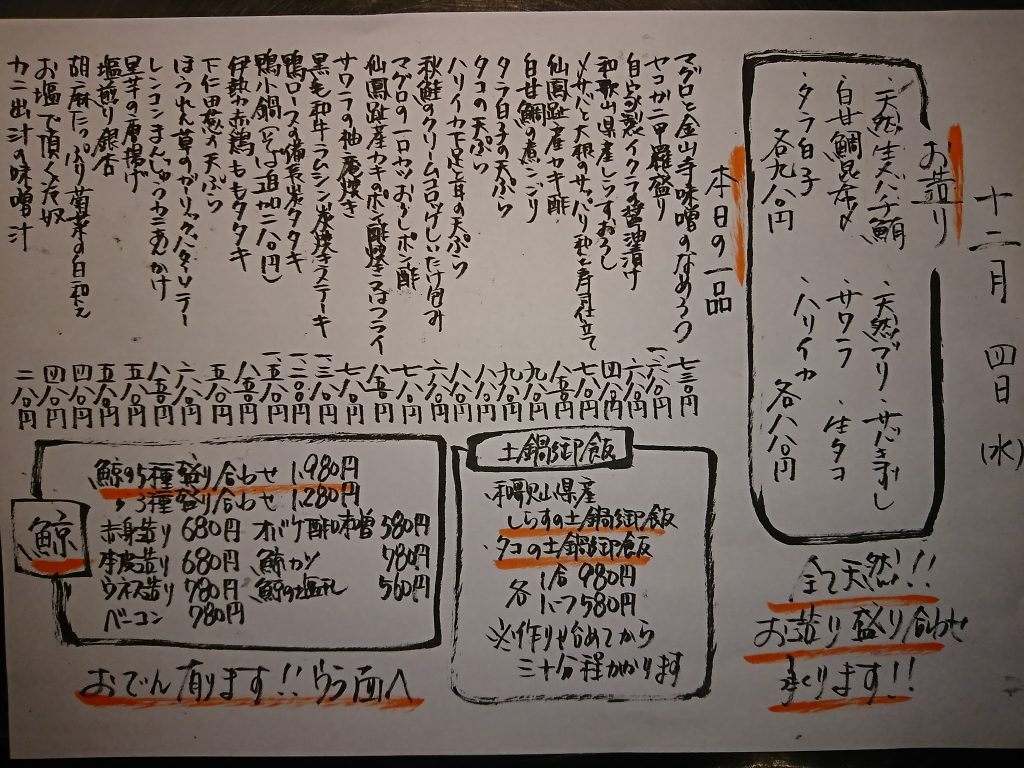 十二月 四日 (水)
お造り
・天然生メバチ鮪 ・天然ブリ ・サッと刺し
・白甘鯛昆布〆 ・サワラ ・生タコ
・タラ白子 ・ハリイカ
各九八〇円 各八八〇円
全て天然!!
お造り盛り合わせ
承ります!!
本日の一品
マグロと金山寺味噌のなめろう 七三〇円
セコガニ甲羅盛り
自家製イクラの醤油漬け 六八〇円
和歌山県産しらすおろし 四八〇円
〆サバと大根のサッパリ和え寿司仕立て 七八〇円
仙鳳趾産カキ酢 八五〇円
白甘鯛の煮 九八〇円
タラ白子の天ぷら 九八〇円
タコの天ぷら 八八〇円
ハリイカ下足と耳の天ぷら 八八〇円
秋鮭のクリームコロッケしいたけ包み 六八〇円
マグロの一口カツおろしポン酢 七八〇円
仙鳳趾産カキのポン酢焼き又はフライ 八五〇円
サワラの柚庵焼き 七八〇円
黒毛和牛ラムシン炭焼きステーキ 一、三八〇円
鴨ロースの備長炭タタキ 一、二八〇円
鴨小鍋(そば追加二八〇円) 一、五八〇円
伊勢赤鶏ももタタキ 八五〇円
下仁田葱の天ぷら 五八〇円
ほうれん草のガーリックバターソテー 六八〇円
レンコンまんじゅうカニあんかけ 八五〇円
里芋の唐揚げ 五八〇円
塩煎り銀杏 五八〇円
胡麻たっぷり菊菜の白和え 四八〇円
お塩で頂く冷奴 四八〇円
カニ出汁の味噌汁 二八〇円
土鍋御飯
和歌山県産
しらすの土鍋御飯
タコの土鍋御飯
各 1合 980円
1.5合 1,580円
※作り始めてから
三十分程かかります
鯨
鯨の5種盛り合わせ 1,980円
〃 3種盛り合わせ 1,280円
赤身造り 680円 オバケ酢味噌 580円
本皮造り 680円 鯨カツ 780円
ウネス造り 780円 鯨の塩ユデ 560円
ベーコン 780円
おでん有ります!! ウラ面へ